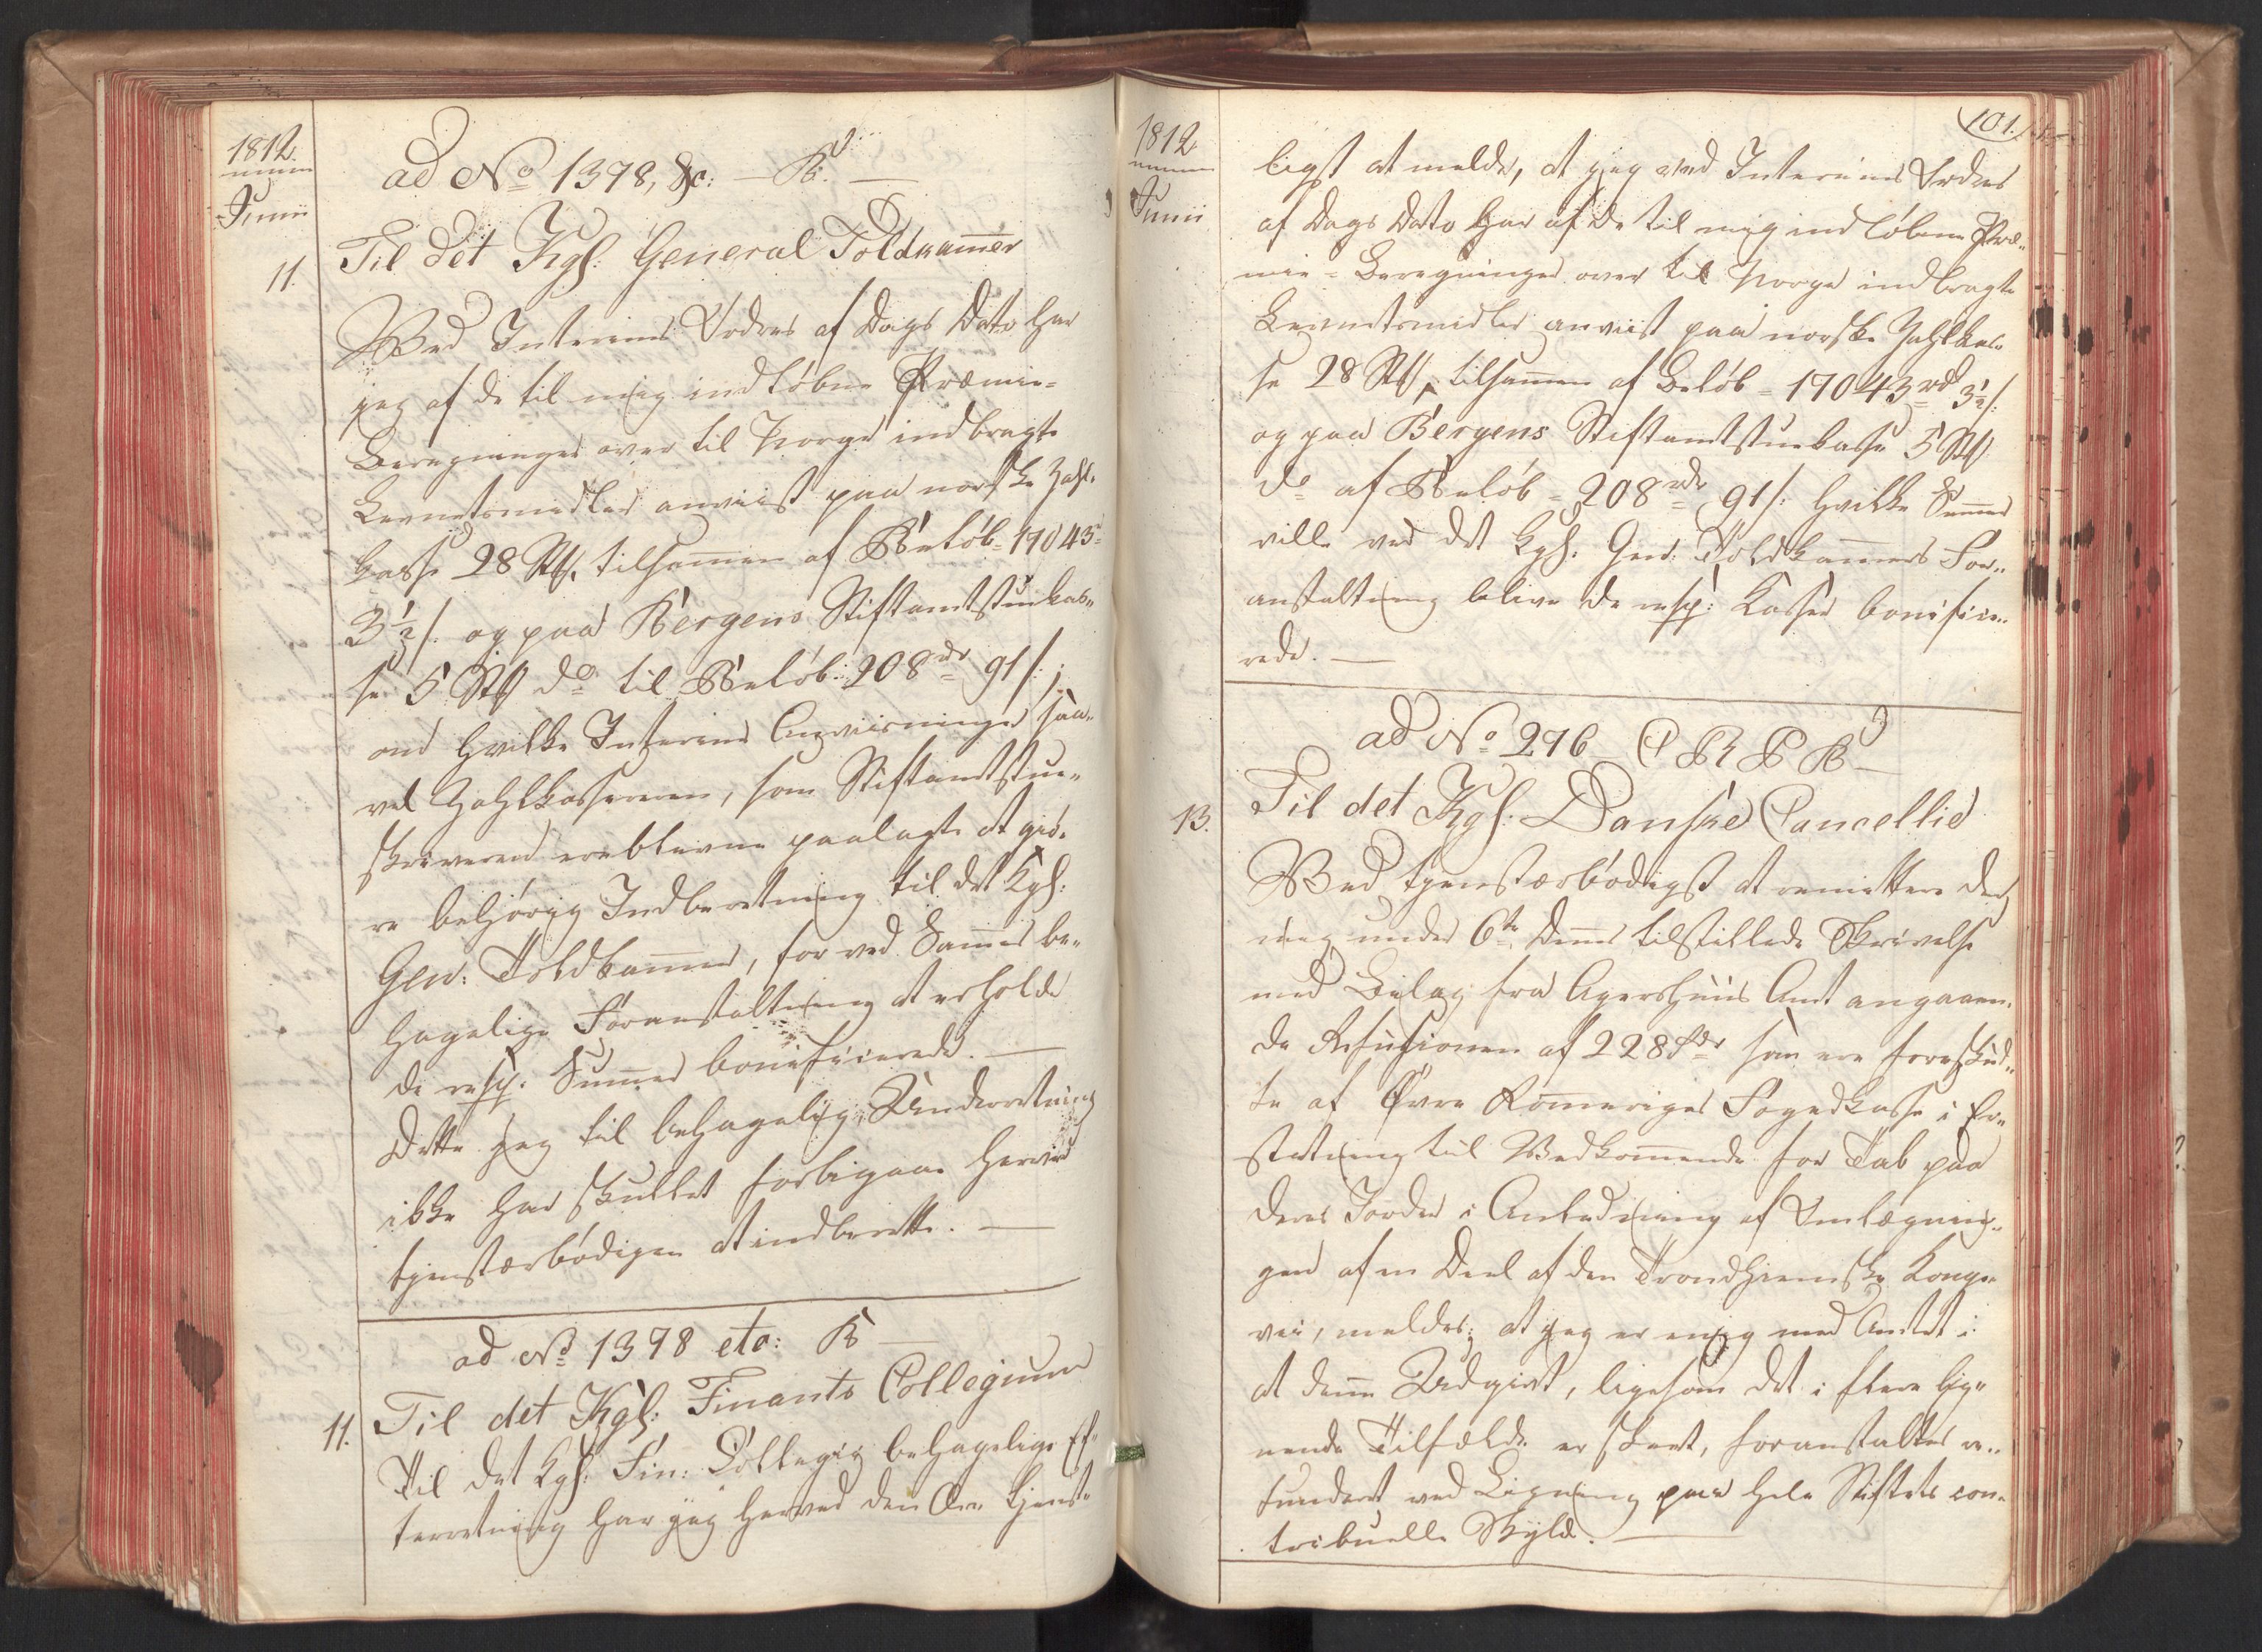 1812.
Junii
ad No 1398, &c: – B. –
11.
Til det Kgl: General Toldkammer
Ved Interims Ordres af Dags Dato har
jeg af de til mig indløbne Præmie-
Beregninger over til Norge indbragte
Levnetsmidler anviist paa norske Zahl-
kasse 28 St., tilsammen af Beløb 17043rd
3½ s. og paa Bergens Stiftamtstuekas-
se 5 St do til Beløb: 208rdr 91 s.;
om hvilke Interims Anviisninger saa-
vel Zahlkassereren, som Stiftamtstue-
skriveren ere blevne paalagte at giø-
re behørig Indberetning til det Kgl:
Gen: Toldkammer, for ved Sammes be-
hagelige Foranstaltning at erholde
de resp: Summer bonificerede. –
Dette jeg til behagelig Underretning
ikke har skullet forbigaae herved
tjenstærbødigen at indberette. –
ad No 1398 etc: B –
11.
Til det Kgl: Finants Collegium
Til det Kgl: Fin: Collegii behagelige Ef-
terretning har jeg herved den Ære tjenst-
1812
Junii
101.
ligst at melde, at jeg ved Interims Ordres
af Dags Dato har af de til mig indløbne Præ-
mie-Beregninger over til Norge indbragte
Levnetsmidler anviist paa norske Zahlkas-
se 28 St, tilsammen af Beløb - 17043rd 3½ s:
og paa Bergens Stiftamtstuekasse 5 St
do af Beløb - 208rdr 91 s: hvilke Summer
ville ved det Kgl: Gen: Toldkammers For-
anstaltning blive de resp: Kasser bonifice-
rede. –
ad No 296 C R P B –
13.
Til det Kgl: Danske Cancellie
Ved tjenstærbødigst at remittere den
mig under 6te dennes tilstillede Skrivelse
med Bilag fra Agershuus Amt angaaen-
de Refusionen af 228 rdr som ere forskud-
te af Øvre Romeriges Fogedkasse i Er-
statning til Vedkommende for Tab paa
deres Jorder i Anledning af Omlægnin-
gen af en Deel af den Trondhiemske Konge-
vei, meldes; at jeg er enig med Amtet i
at denne Udgivt, ligesom det i flere lig-
nende Tilfælde er skeet, foranstaltes re-
funderet ved Ligning paa hele Stiftets con-
tribuelle Skyld. –